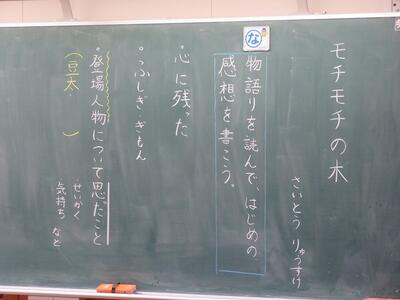 モチモチの木
さいとう りゅうすけ
な
物語りを読んで、はじめの
感想を書こう。
・心に残った
・ふしぎ・ぎもん
・登場人物について思ったこと
(豆太・　　)
・せいかく
気持ち など